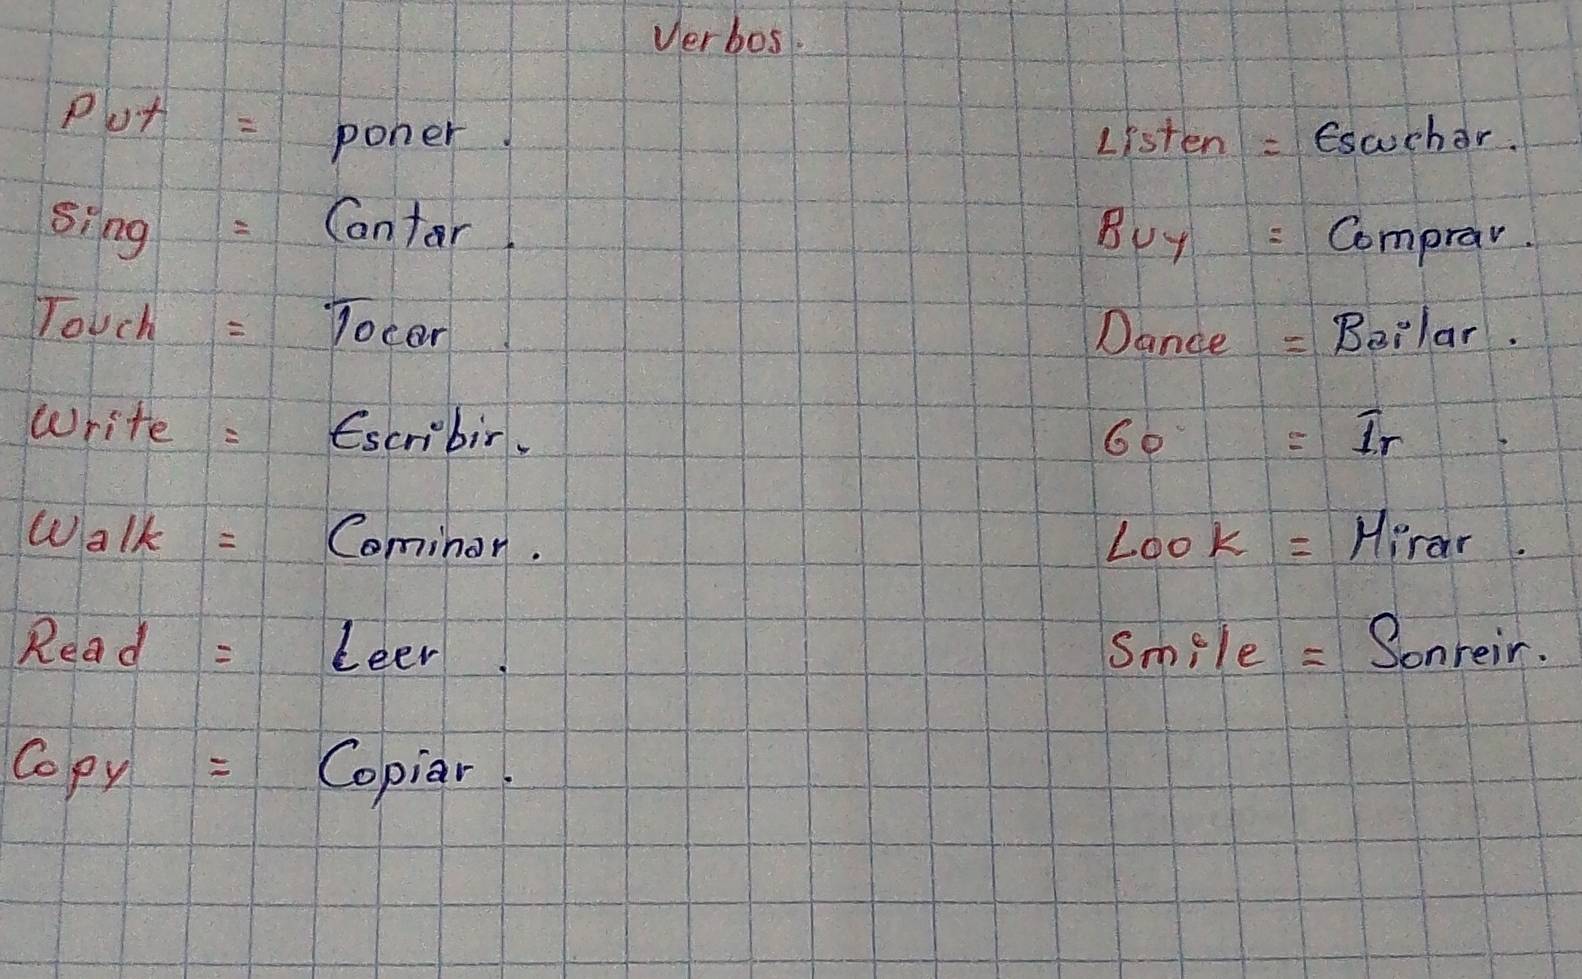 Verbos.
Put = poner.
Sing = Cantar.
Touch = Tocar.
Write = Escribir.
Walk = Caminar.
Read = Leer.
Copy = Copiar.
Listen = Escuchar.
Buy = Comprar.
Dance = Bailar.
Go = Ir.
Look = Mirar.
Smile = Sonreir.